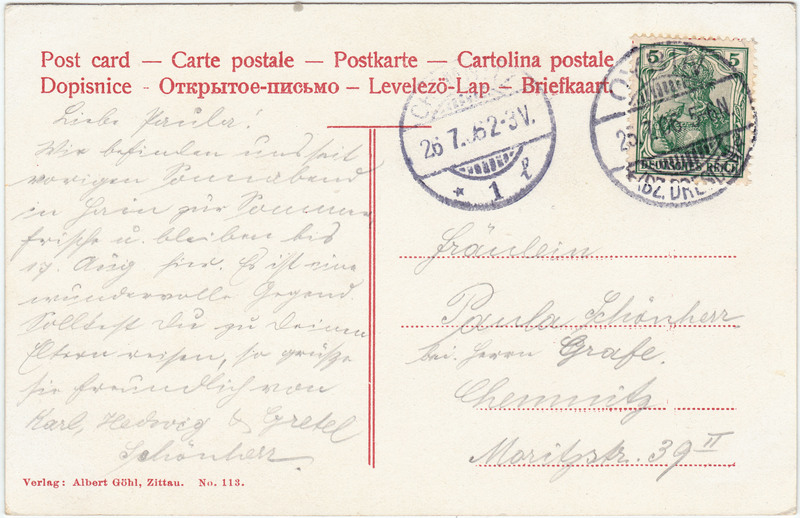 Post card — Carte postale — Postkarte — Cartolina postale
Dopisnice - Открытое-письмо — Levelező-Lap — Briefkaart.
Liebe Paula!
Wir befinden uns seit
vorigen Sonnabend
in Hain zur Sommer
frische u. bleiben bis
17. Aug hier. Es ist eine
wundervolle Gegend.
Solltest Du zu Deinen
Eltern reisen, so grüße
sie freundlich von
Karl, Hedwig & Gretel
Schönherr
CHEMNITZ
26.7.06 2-3V.
* 1 l
5 5
DEUTSCHES REICH
OYBIN
25.7.06 5-6N
(BZ. DRESDEN)
Fräulein
Paula Schönherr
bei Herrn Grafe.
Chemnitz
Moritzstr. 39 II
Verlag: Albert Göhl, Zittau. No. 113.